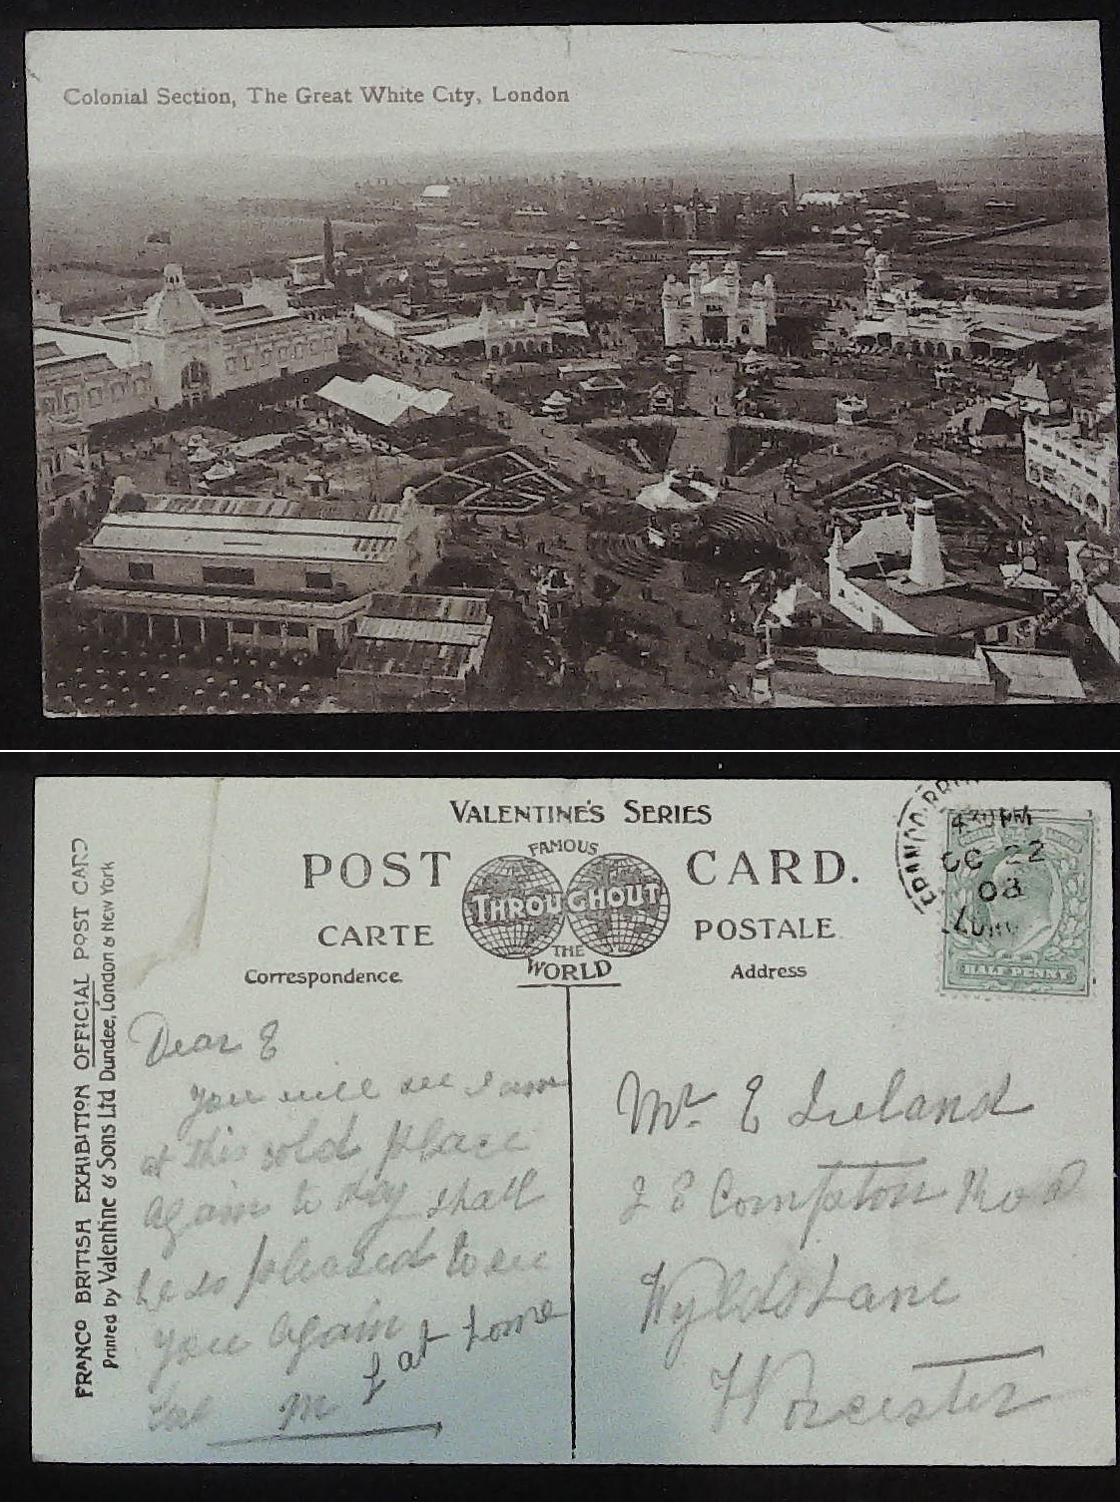 Colonial Section, The Great White City, London
VALENTINE'S SERIES
POST CARD.
FAMOUS
THROUGHOUT
THE
WORLD
CARTE POSTALE
Correspondence
Address
FRANCO BRITISH EXHIBITION OFFICIAL POST CARD
Printed by Valentine & Sons Ltd Dundee, London & New York
4 30 PM
OC 22
08
HALF PENNY
Dear E
you will see I am
at this old place
again to day shall
be so pleased to see
you again
at home
M
Mr. E Ireland
Compton Road
Wylds Lane
Worcester